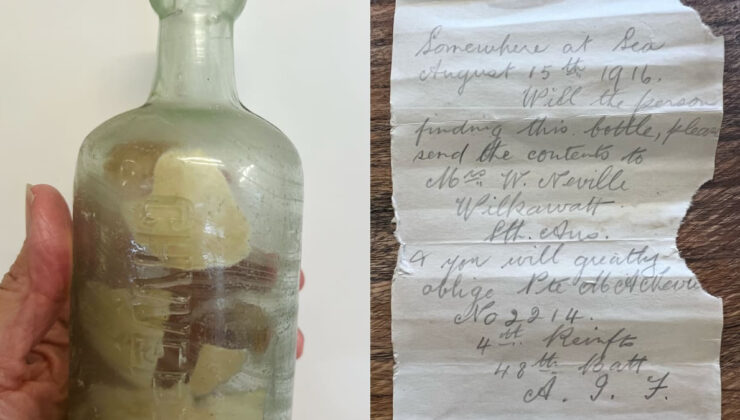 Somewhere at Sea
August 15th 1916.
Will the person
finding this bottle, pleas
send the contents to
Mrs W. Neville
Wilkawatt.
Sth. Aus.
& you will greatly
oblige Pte M A Nevill
No 2214.
4th Reinft
48th Batt
A. I. F.